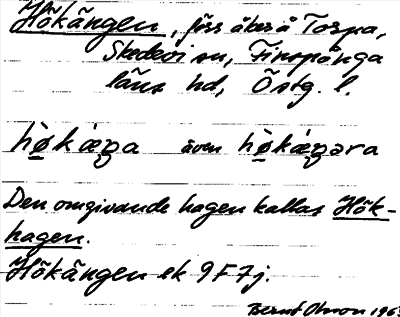 Hökängen, förr åker å Torpa,
Skedevi sn, Finspånga
läns hd, Östg. l.
hø̀káŋa även hø̀káŋəra
Den omgivande hagen kallas Hök-
hagen.
Hökängen ek 9F7j.
Bernt Olsson 1963